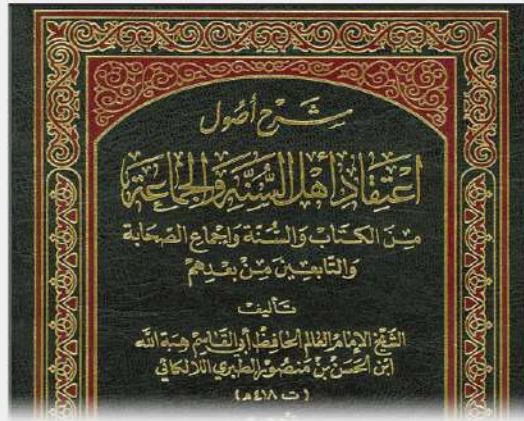 شرح أصول
اعتقاد أهل السنة والجماعة
من الكتاب والسنة وإجماع الصحابة
والتابعين من بعدهم
تأليف
الشيخ الإمام العالم الحافظ أبي القاسم هبة الله
ابن الحسن بن منصور الطبري اللالكائي
(ت ٤١٨ هـ)